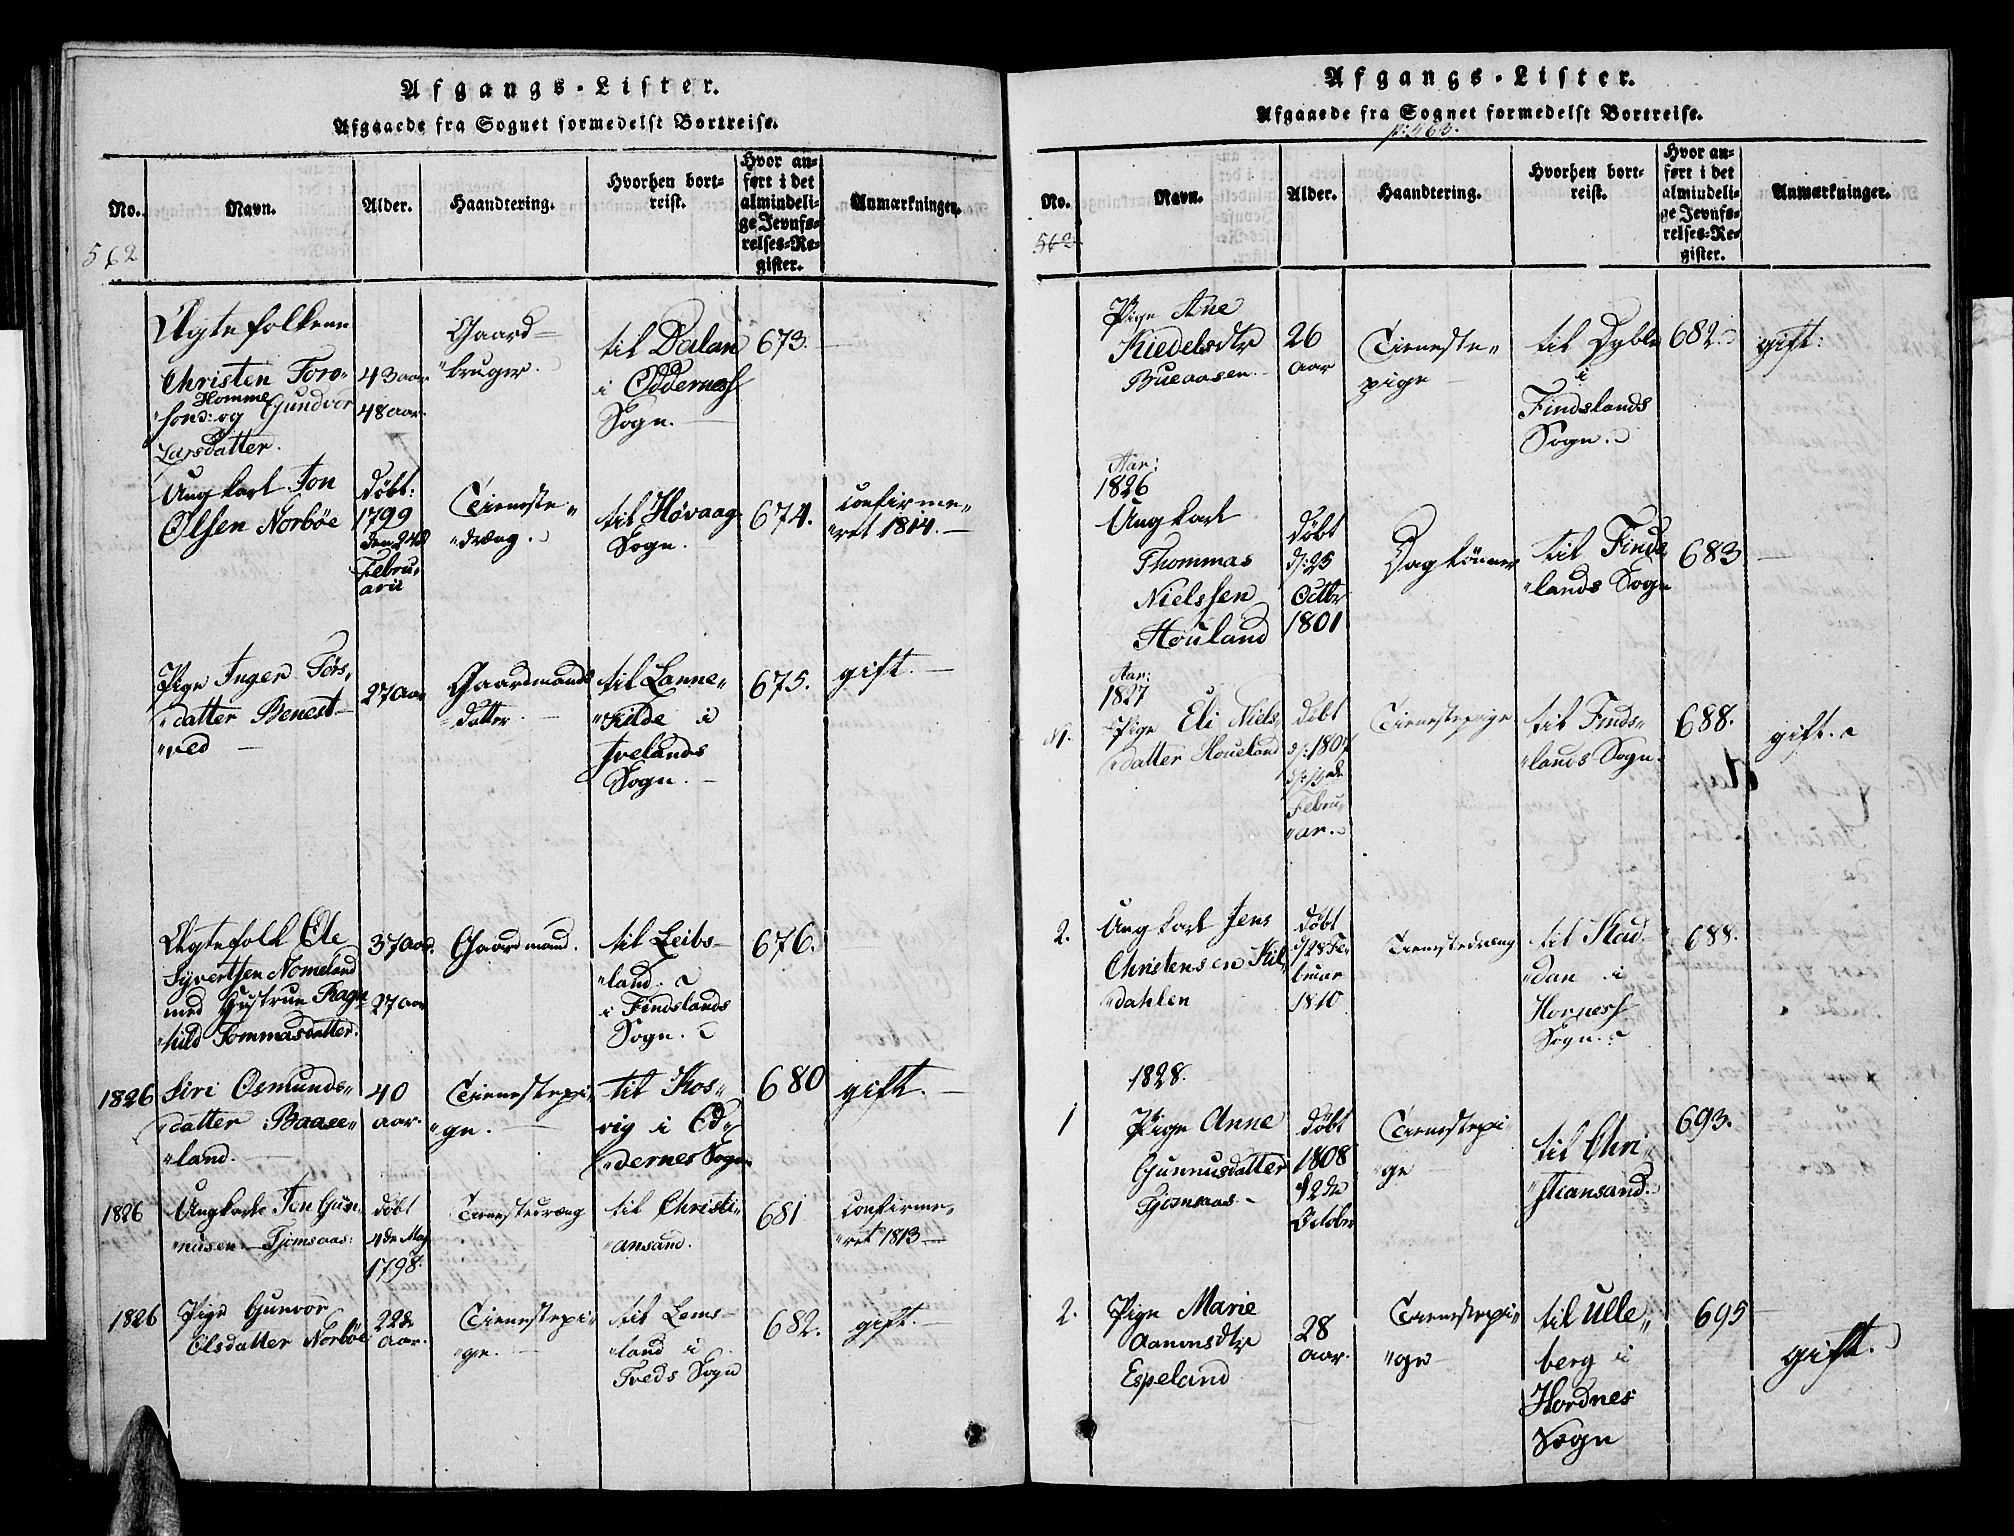 Afgangs-Lister.
Afgaaede fra Sognet formedelst Bortreise.
No.
Navn.
Alder.
Haandtering.
Hvorhen bort-
reist.
Hvor an-
ført i det
almindeli-
ge Jevnfø-
relses-Re-
gister.
Anmærkninger.
562
Ægtefolkene
Christen Toro-
Homme
sønd: og Gundvor
Larsdatter.
43 aar
48 aar.
Gaard-
bruger.
til Dalan
i Oddernesf
Sogn.
673.
Ungkarl Jon
Olsen Norbøe
døbt:
1799
den 24d
Febru-
arii
Tieneste-
dræng.
til Høvaag
Sogn.
674.
Confirme-
ret 1814.
Pige Inger Tørs-
datter Benest-
ved
27 aar
Gaardmands
datter
til Lanne-
kilde i
Ivelands
Sogn.
675.
gift.
Ægtefolk Ole
Syvertsen Nomeland
med Hustrue Ragn-
hild Tommasdatter.
37 aar.
27 aar
Gaardmand.
til Leibs-
land
i Findslands
Sogn.
676.
1826
Siri Osmunds-
datter Baase-
land.
40
aar.
Tienestepi-
ge.
til Kos-
vig i Od-
dernes Sogn
680
gift.
1826
Ungkarl Jon Gun-
nusen Tjomsaas:
døbt
4de May
1798.
Tienestedræng
til Christi-
ansand.
681
Confirme-
ret 1813
1826
Pige Gunvor
Olsdatter Norbøe
22de
aar.
Tienestepi-
ge.
til Lems-
land i
Treds Sogn
682.
gift.
Afgangs-Lister.
Afgaaede fra Sognet formedelst Bortreise.
p: 563.
No.
Navn.
Alder.
Haandtering.
Hvorhen bort-
reist.
Hvor an-
ført i det
almindeli-
ge Jevnfø-
relses-Re-
gister.
Anmærkninger.
562
Pige Ane
Kiedelsdtr
Bueaasen
26
aar
Tieneste-
pige
til Dyble
i
Findslands
Sogn.
682.
gift:
Aar:
1826
Ungkarl
Thommas
Nielssen
Houland
døbt
d: 25
Octbr
1801
Daglønner
til Finds
lands Sogn
683
Aar:
1827
Pige Eli Niels-
datter Houeland
døbt
Febru-
ar.
Tienestepige
til Finds-
lands Sogn.
688.
gift.
2.
Ungkarl Jens
Christensen Kil-
dahlen
døbt
d/28 Fe-
bruar
1810
Tienestedræng
til Skad-
dan i
Hornesf
Sogn.
688.
1828.
1
Pige Anne
Gunnusdatter
Tjomsaas
døbt
1808
12de
Octobr
Tienestepi
ge
til Chri-
stiansand.
693.
2.
Pige Marie
Aanonsdtr
Espeland
28
aar.
Tienestepi-
ge
til Ulle-
berg i
Hordnes
Sogn
695
gift.